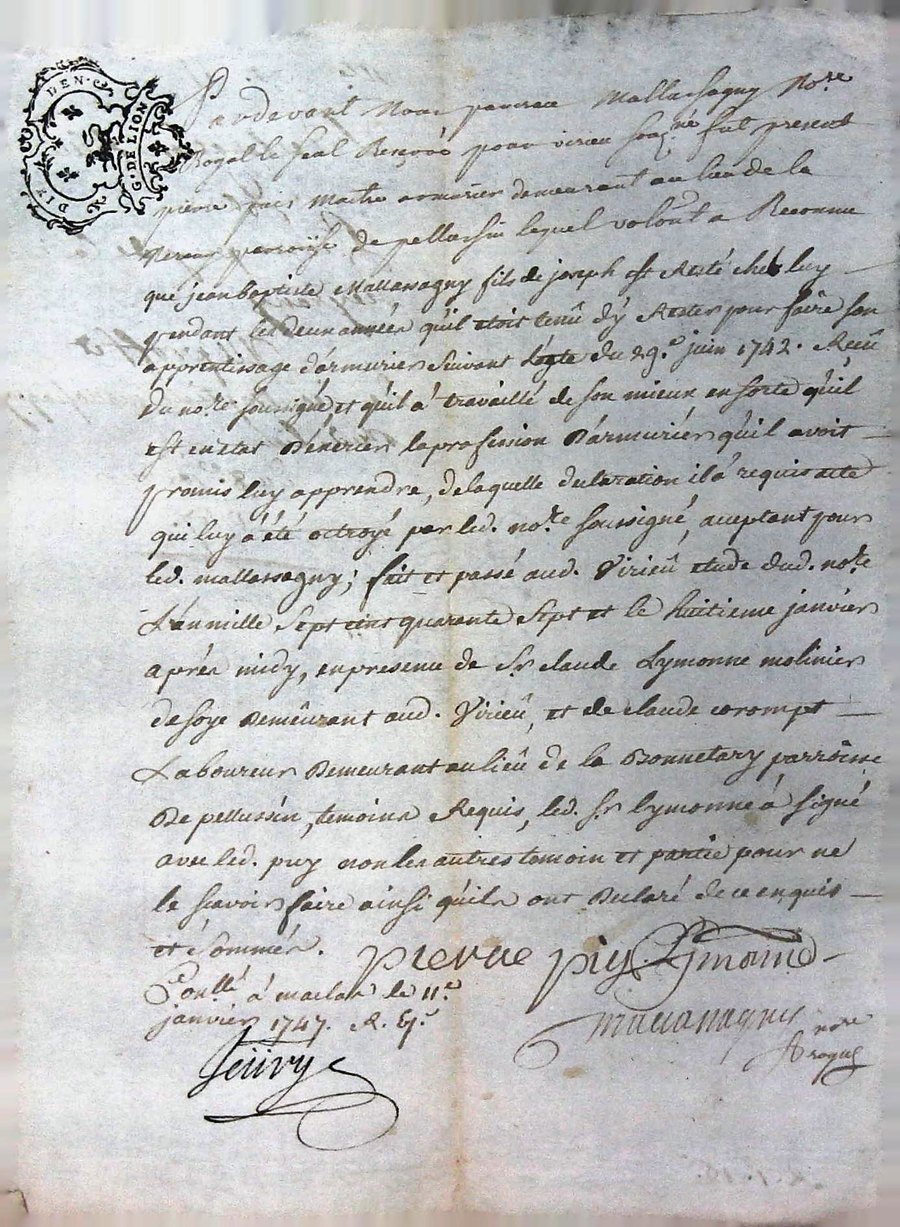 DIX DEN.
G. DE LION
Pardevant Nous Mallassagny No.re
Royal le seal Reservé pour virieu sous.né fut present
pierre puis Maitre armurier demeurant au lieu de la
paroisse de pellassin lequel volont. a Reconnu
que jean baptiste Mallassagny fils de joseph est Resté chez luy
pendant les deux année qu'il etoit tenû d'y Rester pour faire son
apprentissage d'armurier suivant l'acte du 29.e juin 1742. Receû
Du no.re soussigné et qu'il a travaillé de son mieux en sorte qu'il
est en etat D'exercer la profession D'armurier qu'il avoit
promis luy apprendre, de laquelle declaration il à requis acte
qui luy à été octroyé par led. no.re soussigné, aceptant pour
led. mallassagny; fait et passé aud. Virieû etude dud. no.re
L'an mille sept cent quarante sept et le huitieme janvier
aprés midy, en presence de S.r claude Lymonne molinier
de soye Demeurant aud. Virieû, et de claude corompt
Laboureur Demeurant au lieû de la Bonnetary parroisse
De pellussin, temoins Requis, led. S.r lymonne à signé
avec led. puy non les autres temoin et partie pour ne
le scavoir faire ainsi qu'ils ont Declaré de ce enquis
et sommés.
pierre piy Lymonne
Con.llé à maclas le 11.e
janvier 1747. R.
mallassagny no.re
Royal